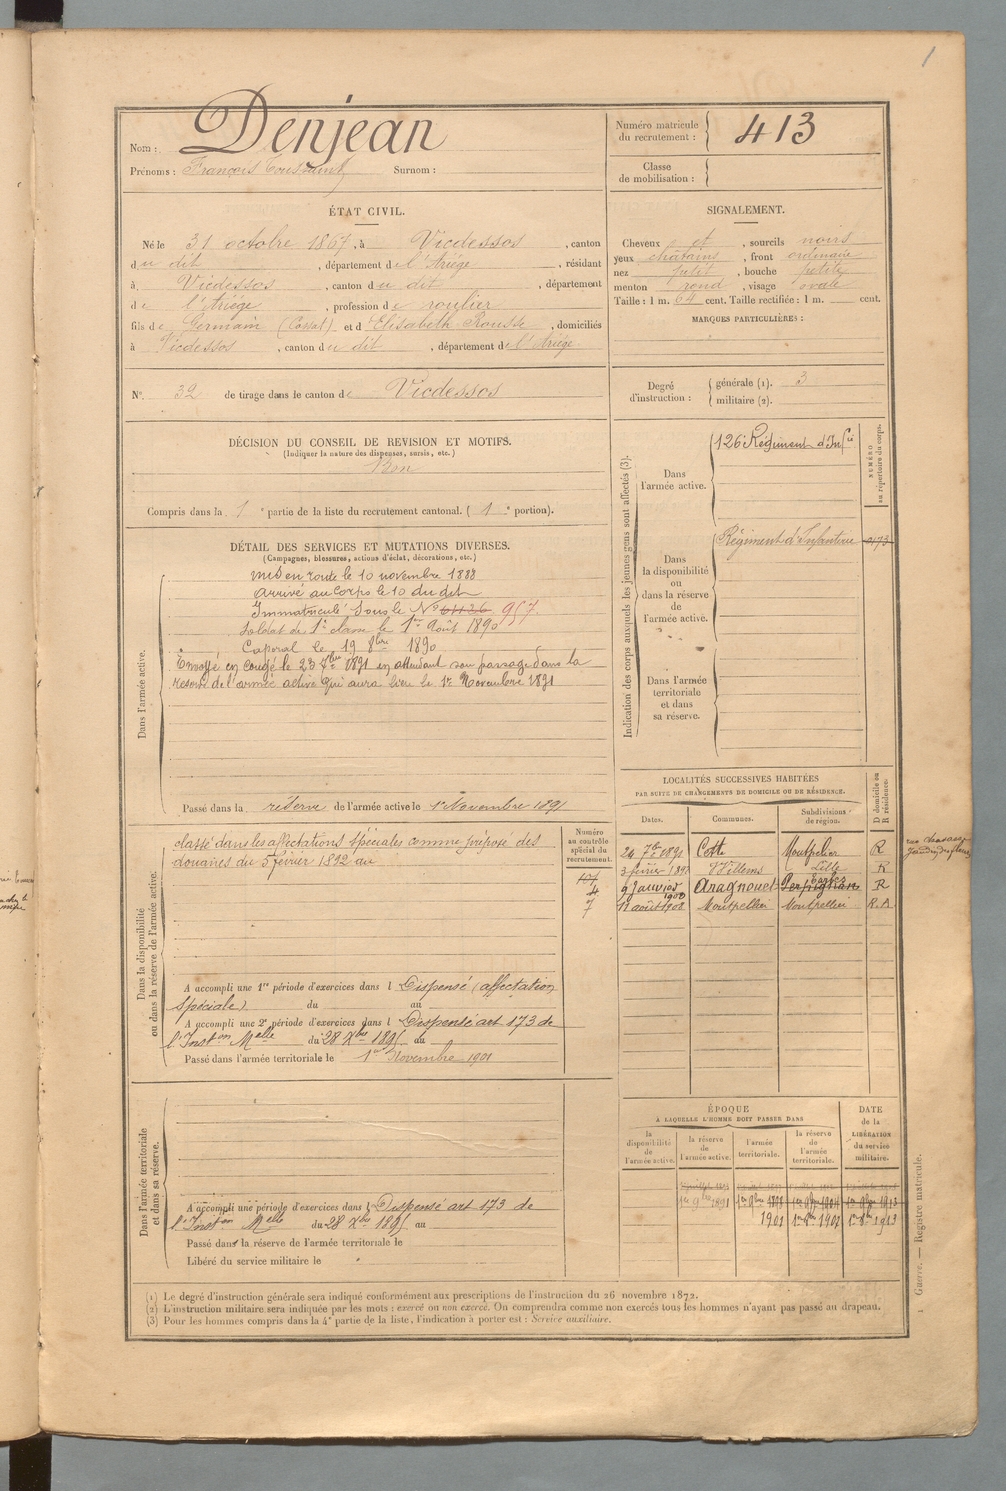 1
Nom : Denjean
Prénoms : François Toussaint Surnom :
Numéro matricule du recrutement : 413
Classe de mobilisation :
ÉTAT CIVIL.
Né le 31 octobre 1867, à Vicdessos, canton
du dit, département de l'Ariège, résidant
à Vicdessos, canton du dit, département
de l'Ariège, profession de roulier
fils de Germain (Cossat) et d'Elisabeth Rousse, domiciliés
à Vicdessos, canton du dit, département de l'Ariège
N° 32 de tirage dans le canton de Vicdessos
SIGNALEMENT.
Cheveux et, sourcils noirs
yeux châtains, front ordinaire
nez petit, bouche petite
menton rond, visage ovale
Taille : 1 m. 64 cent. Taille rectifiée : 1 m. cent.
MARQUES PARTICULIÈRES :
Degré d'instruction : générale (1). 3
militaire (2).
DÉCISION DU CONSEIL DE REVISION ET MOTIFS.
(Indiquer la nature des dispenses, sursis, etc.)
Bon
Compris dans la 1e partie de la liste du recrutement cantonal. (1e portion).
DÉTAIL DES SERVICES ET MUTATIONS DIVERSES.
(Campagnes, blessures, actions d'éclat, décorations, etc.)
Dans l'armée active.
Mis en route le 10 novembre 1888
Arrivé au corps le 10 du dit
Immatriculé sous le N° 957
Soldat de 1e classe le 1er Août 1890
Caporal le 19 8bre 1890
Envoyé en congé le 23 7bre 1891 en attendant son passage dans la
réserve de l'armée active qui aura lieu le 1er Novembre 1891
Passé dans la réserve de l'armée active le 1er Novembre 1891
Indication des corps auxquels les jeunes gens sont affectés (3).
NUMÉRO au répertoire du corps.
Dans l'armée active. 126e Régiment d'Infie
Dans la disponibilité ou dans la réserve de l'armée active. Régiment d'Infanterie 0173
Dans l'armée territoriale et dans sa réserve.
Dans la disponibilité ou dans la réserve de l'armée active.
Classé dans les affectations spéciales comme préposé des
douanes du 5 février 1892 au
Numéro au contrôle spécial du recrutement.
107
4
7
A accompli une 1re période d'exercices dans l Dispensé (affectation
spéciale) du au
A accompli une 2e période d'exercices dans l Dispensé art 173 de
l'Inston Melle du 28 Xbre 1895 au
Passé dans l'armée territoriale le 1er Novembre 1901
LOCALITÉS SUCCESSIVES HABITÉES
PAR SUITE DE CHANGEMENTS DE DOMICILE OU DE RÉSIDENCE.
Dates. Communes. Subdivisions de région. D domicile ou R résidence.
24 7bre 1891 Cette Montpellier R
3 février 1892 Willems Lille R
9 Janvier 1900 Aragnouet Perpignan Tarbes R
11 août 1908 Montpellier Montpellier R.D
Dans l'armée territoriale et dans sa réserve.
A accompli une période d'exercices dans l Dispensé art 173 de
l'Inston Melle du 28 Xbre 1895 au
Passé dans la réserve de l'armée territoriale le
Libéré du service militaire le
ÉPOQUE
À LAQUELLE L'HOMME DOIT PASSER DANS
la disponibilité de l'armée active. la réserve de l'armée active. l'armée territoriale. la réserve de l'armée territoriale.
DATE de la LIBÉRATION du service militaire.
1er 9bre 1891 1er 9bre 1898 1er 9bre 1904 1er 9bre 1913
1901 1er 9bre 1907 1er 8bre 1913
(1) Le degré d'instruction générale sera indiqué conformément aux prescriptions de l'instruction du 26 novembre 1872.
(2) L'instruction militaire sera indiquée par les mots : exercé ou non exercé. On comprendra comme non exercés tous les hommes n'ayant pas passé au drapeau.
(3) Pour les hommes compris dans la 4e partie de la liste, l'indication à porter est : Service auxiliaire.
Guerre. — Registre matricule.